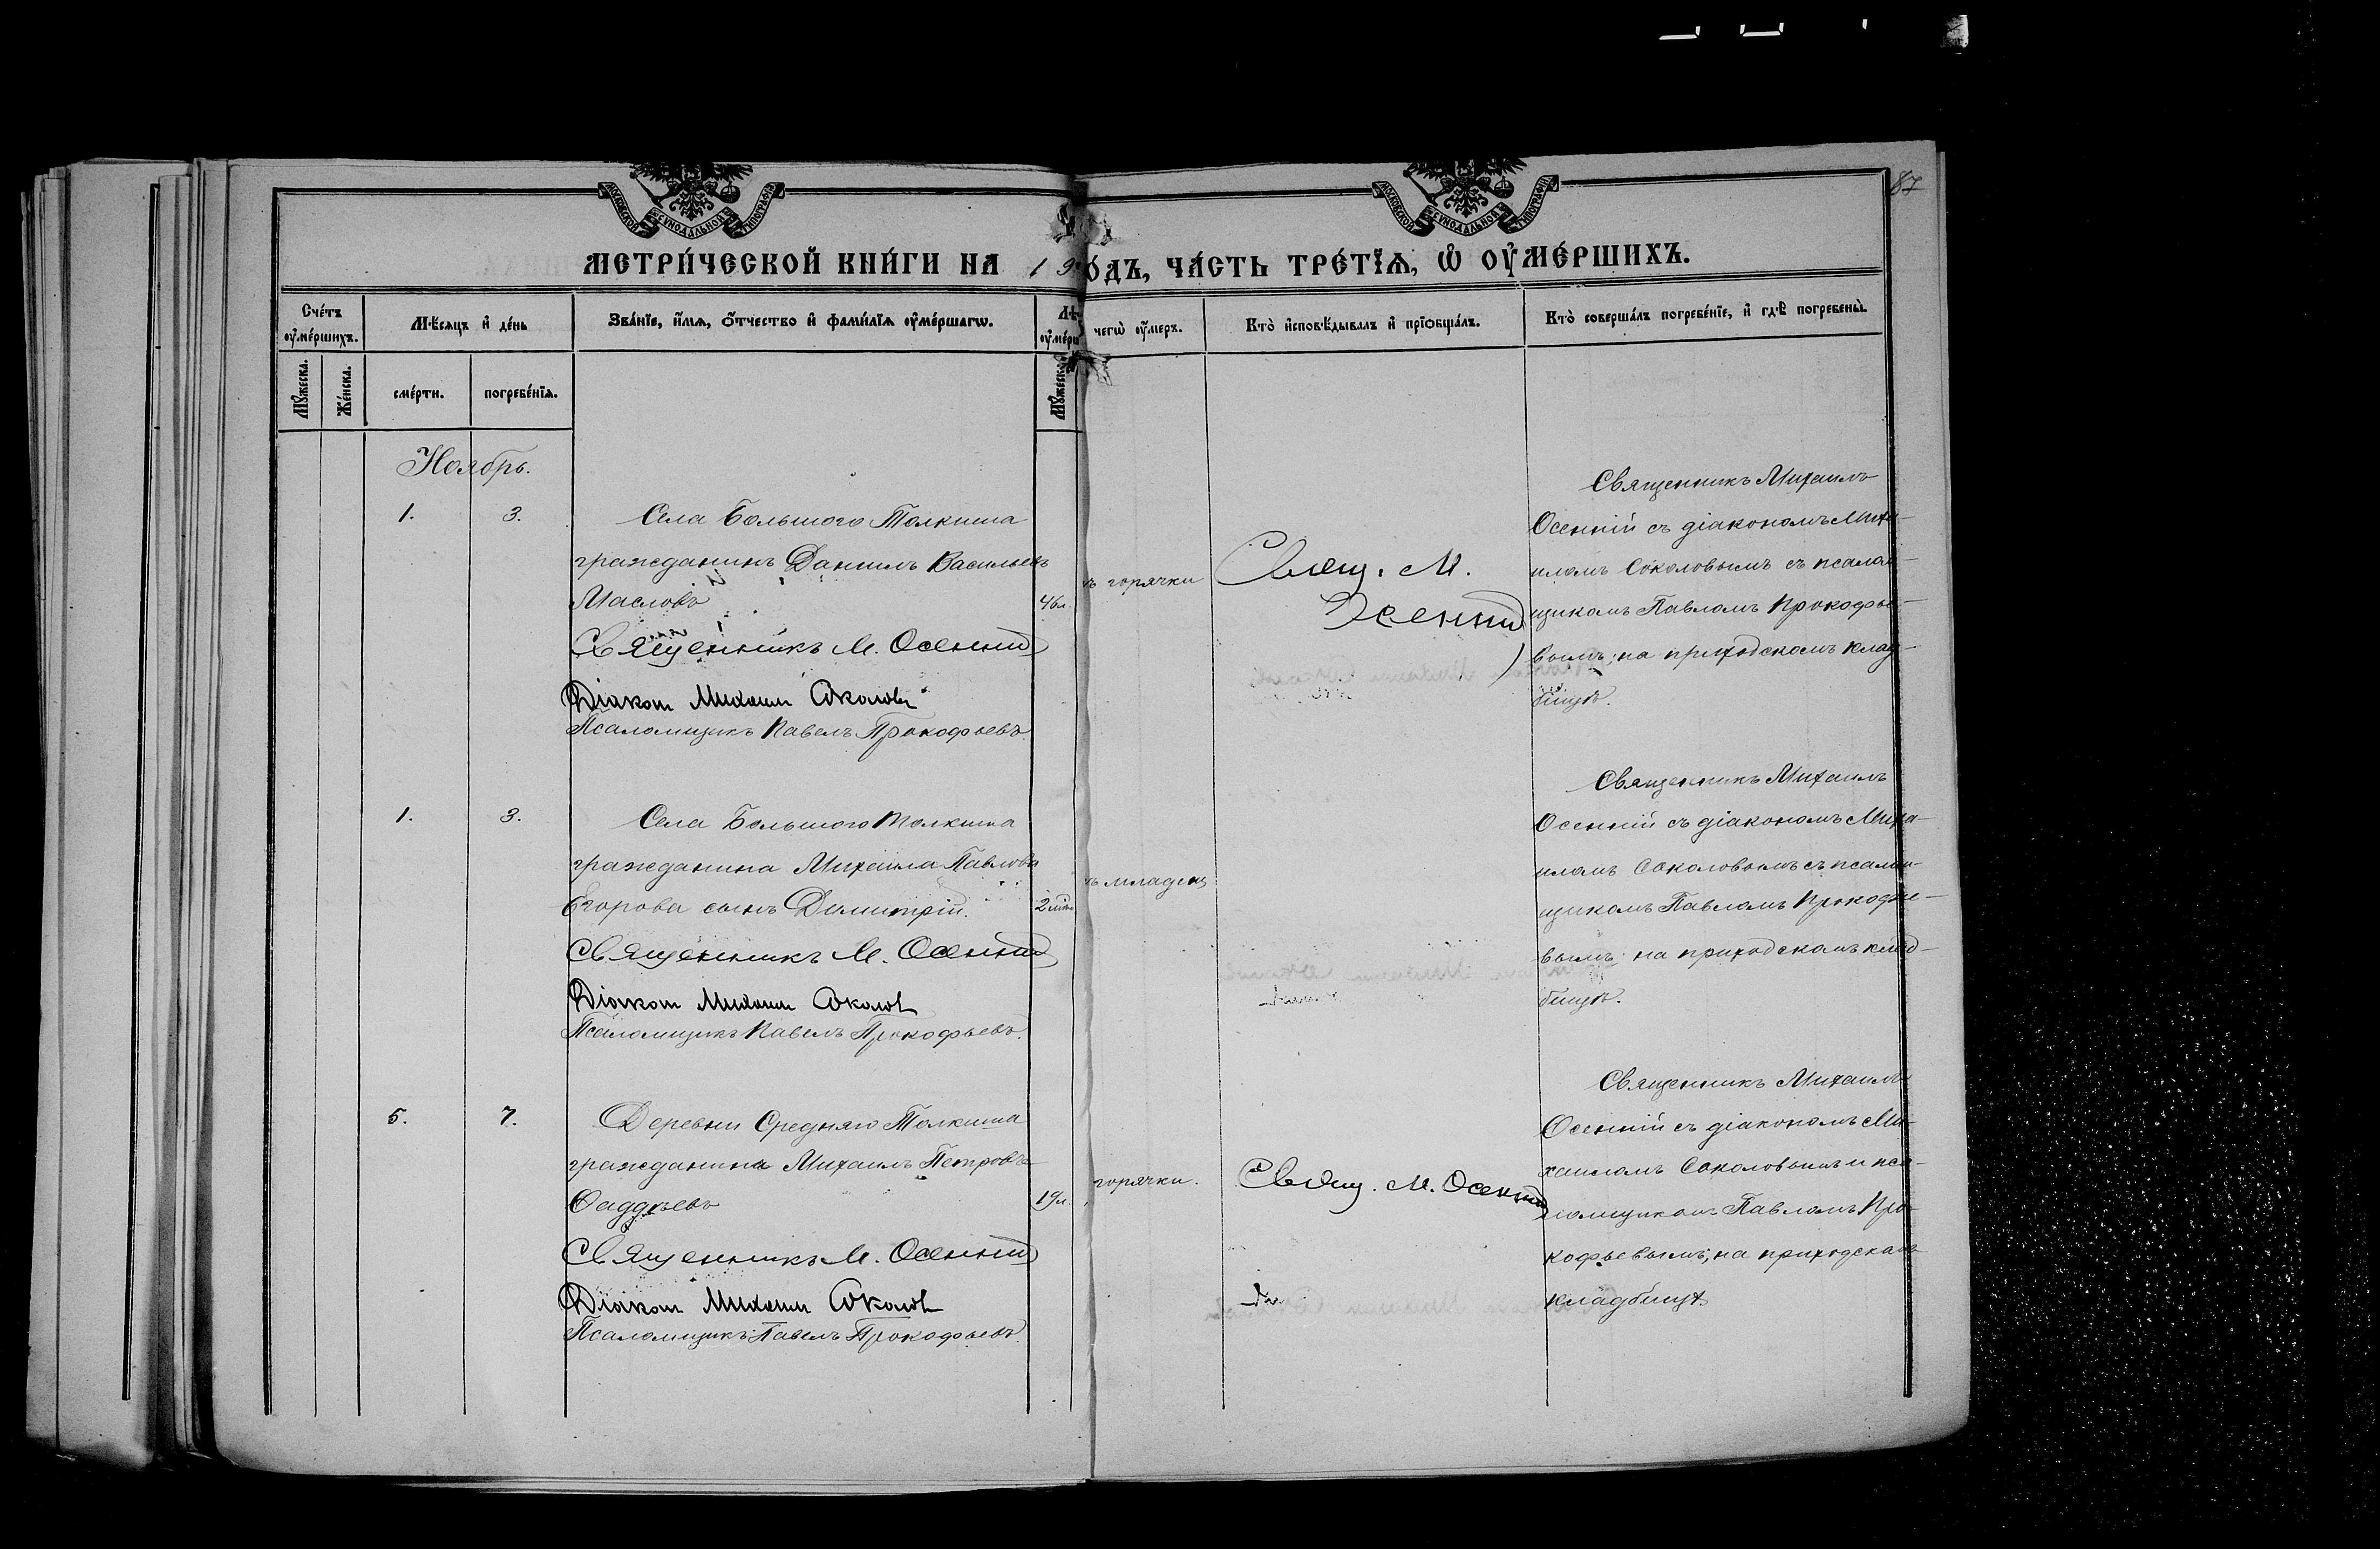 87
МОСКОВСКОЙ СѴНОДАЛЬНОЙ ТИПОГРАФІИ
МОСКОВСКОЙ СѴНОДАЛЬНОЙ ТИПОГРАФІИ
МЕТРИ́ЧЕСКОЙ КНИ́ГИ НА 19 О́ДЪ, ЧА́СТЬ ТРЕ́ТЇѦ, Ѡ҆ ОУ҆МЕ́РШИХЪ.
Сче́тъ оу҆ме́ршихъ.
Мѣ́сяцъ и҆ де́нь
Зва́нїе, и҆́мя, ѻ҆́тчество и҆ фами́лїя оу҆ме́ршагѡ.
Лѣ оу҆ме́рш
чегѡ̀ оу҆́меръ.
Кто̀ и҆сповѣ́дывалъ и҆ прїѻбща́лъ.
Кто̀ соверша́лъ погребе́нїе, и҆ гдѣ̀ погребены̀.
Му́жеска.
Же́нска.
сме́рти.
погребе́нїя.
Му́жеск
Ноябрь.
1.
3.
Села Большого Толкиша
гражданинъ Даниилъ Васильевъ
Масловъ
46 л.
Священникъ М. Осенній
Діаконъ Михаилъ Соколовъ
Псаломщикъ Павелъ Прокофьевъ
ъ горячки
Свящ. М.
Осенній
Священникъ Михаилъ
Осенній съ діакономъ Миха-
иломъ Соколовымъ съ псалом-
щикомъ Павломъ Прокофье-
вымъ; на приходскомъ клад-
бищѣ.
1.
3.
Села Большого Толкиша
гражданина Михаила Павлова
Егорова сынъ Димитрій.
Священникъ М. Осенній
Діаконъ Михаилъ Соколовъ
Псаломщикъ Павелъ Прокофьевъ.
ъ младенч
Священникъ Михаилъ
Осенній съ діакономъ Миха-
иломъ Соколовымъ съ псалом-
щикомъ Павломъ Прокофье-
вымъ; на приходскомъ клад-
бищѣ.
5.
7.
Деревни Средняго Толкиша
гражданина Михаилъ Петровъ
Фаддѣевъ
19 л.
Священникъ М. Осенній
Діаконъ Михаилъ Соколовъ
Псаломщикъ Павелъ Прокофьевъ.
горячки.
Свящ. М. Осенній
Священникъ Михаилъ
Осенній съ діакономъ Ми-
хаиломъ Соколовымъ и пса-
ломщикомъ Павломъ Про-
кофьевымъ; на приходскомъ
кладбищѣ